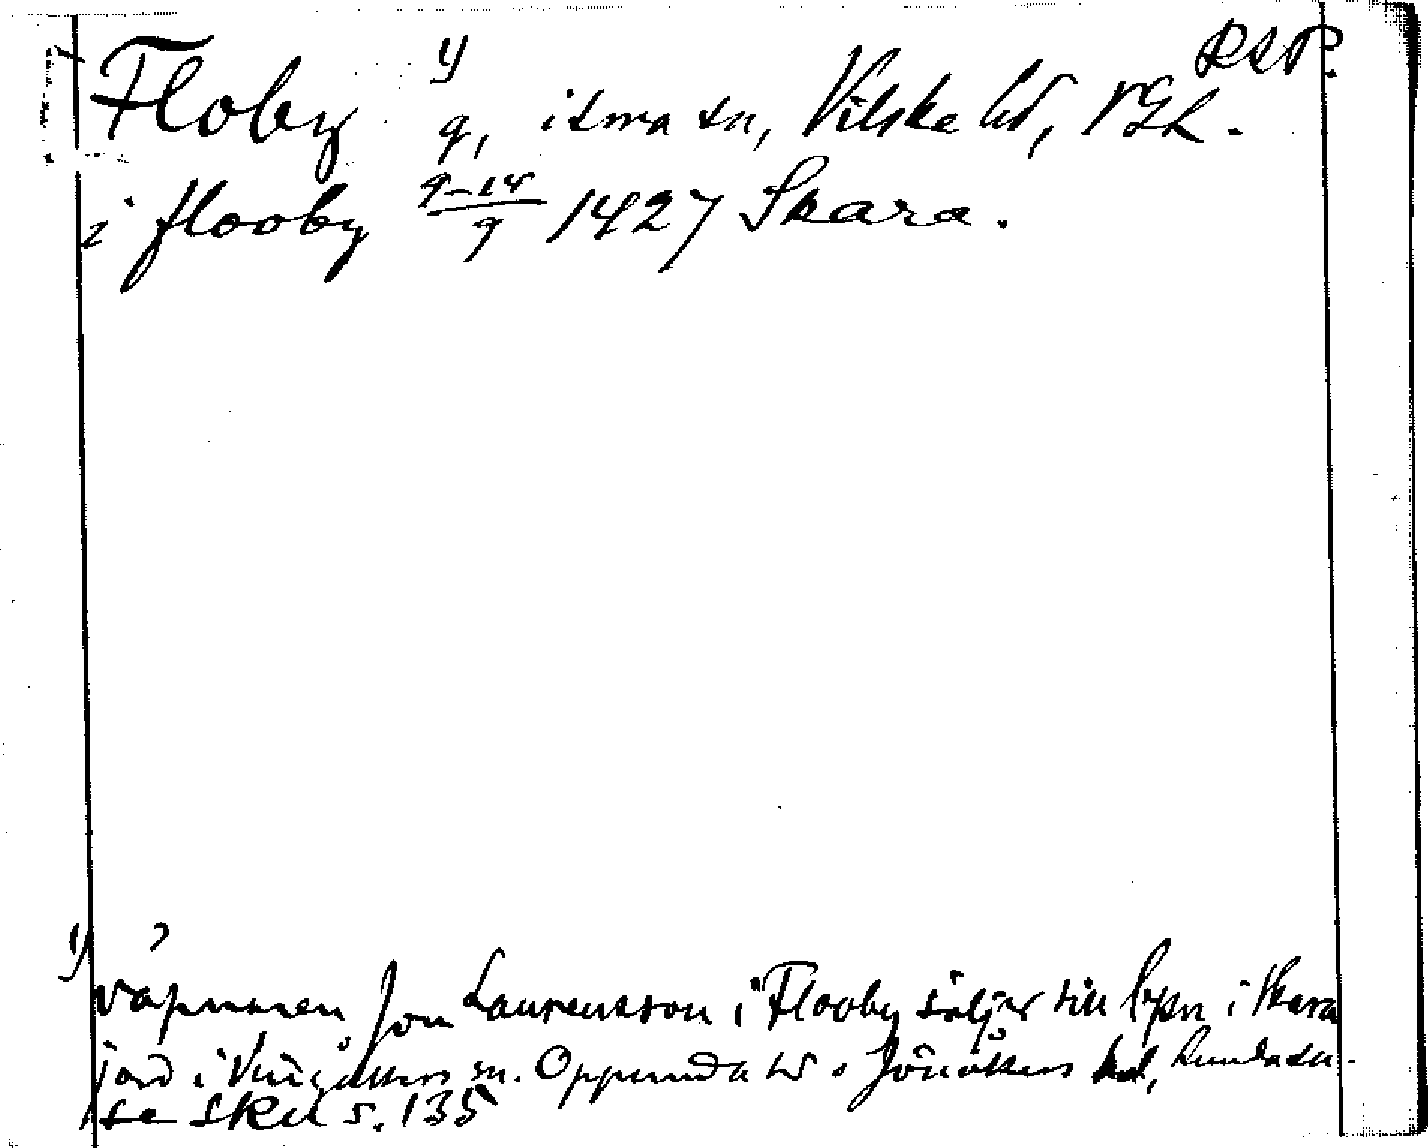 RAP.
Floby y g, i sma sn, Vilske hd, VGL.
i flooby 9-14/9 1427 Skara.
y väpnaren Jon Laurensson i Flooby säljer till bpn i Skara
jord i Vingåkers sn. Oppunda hd o Jönåkers hd, Lunda sn.
se SRll s. 135